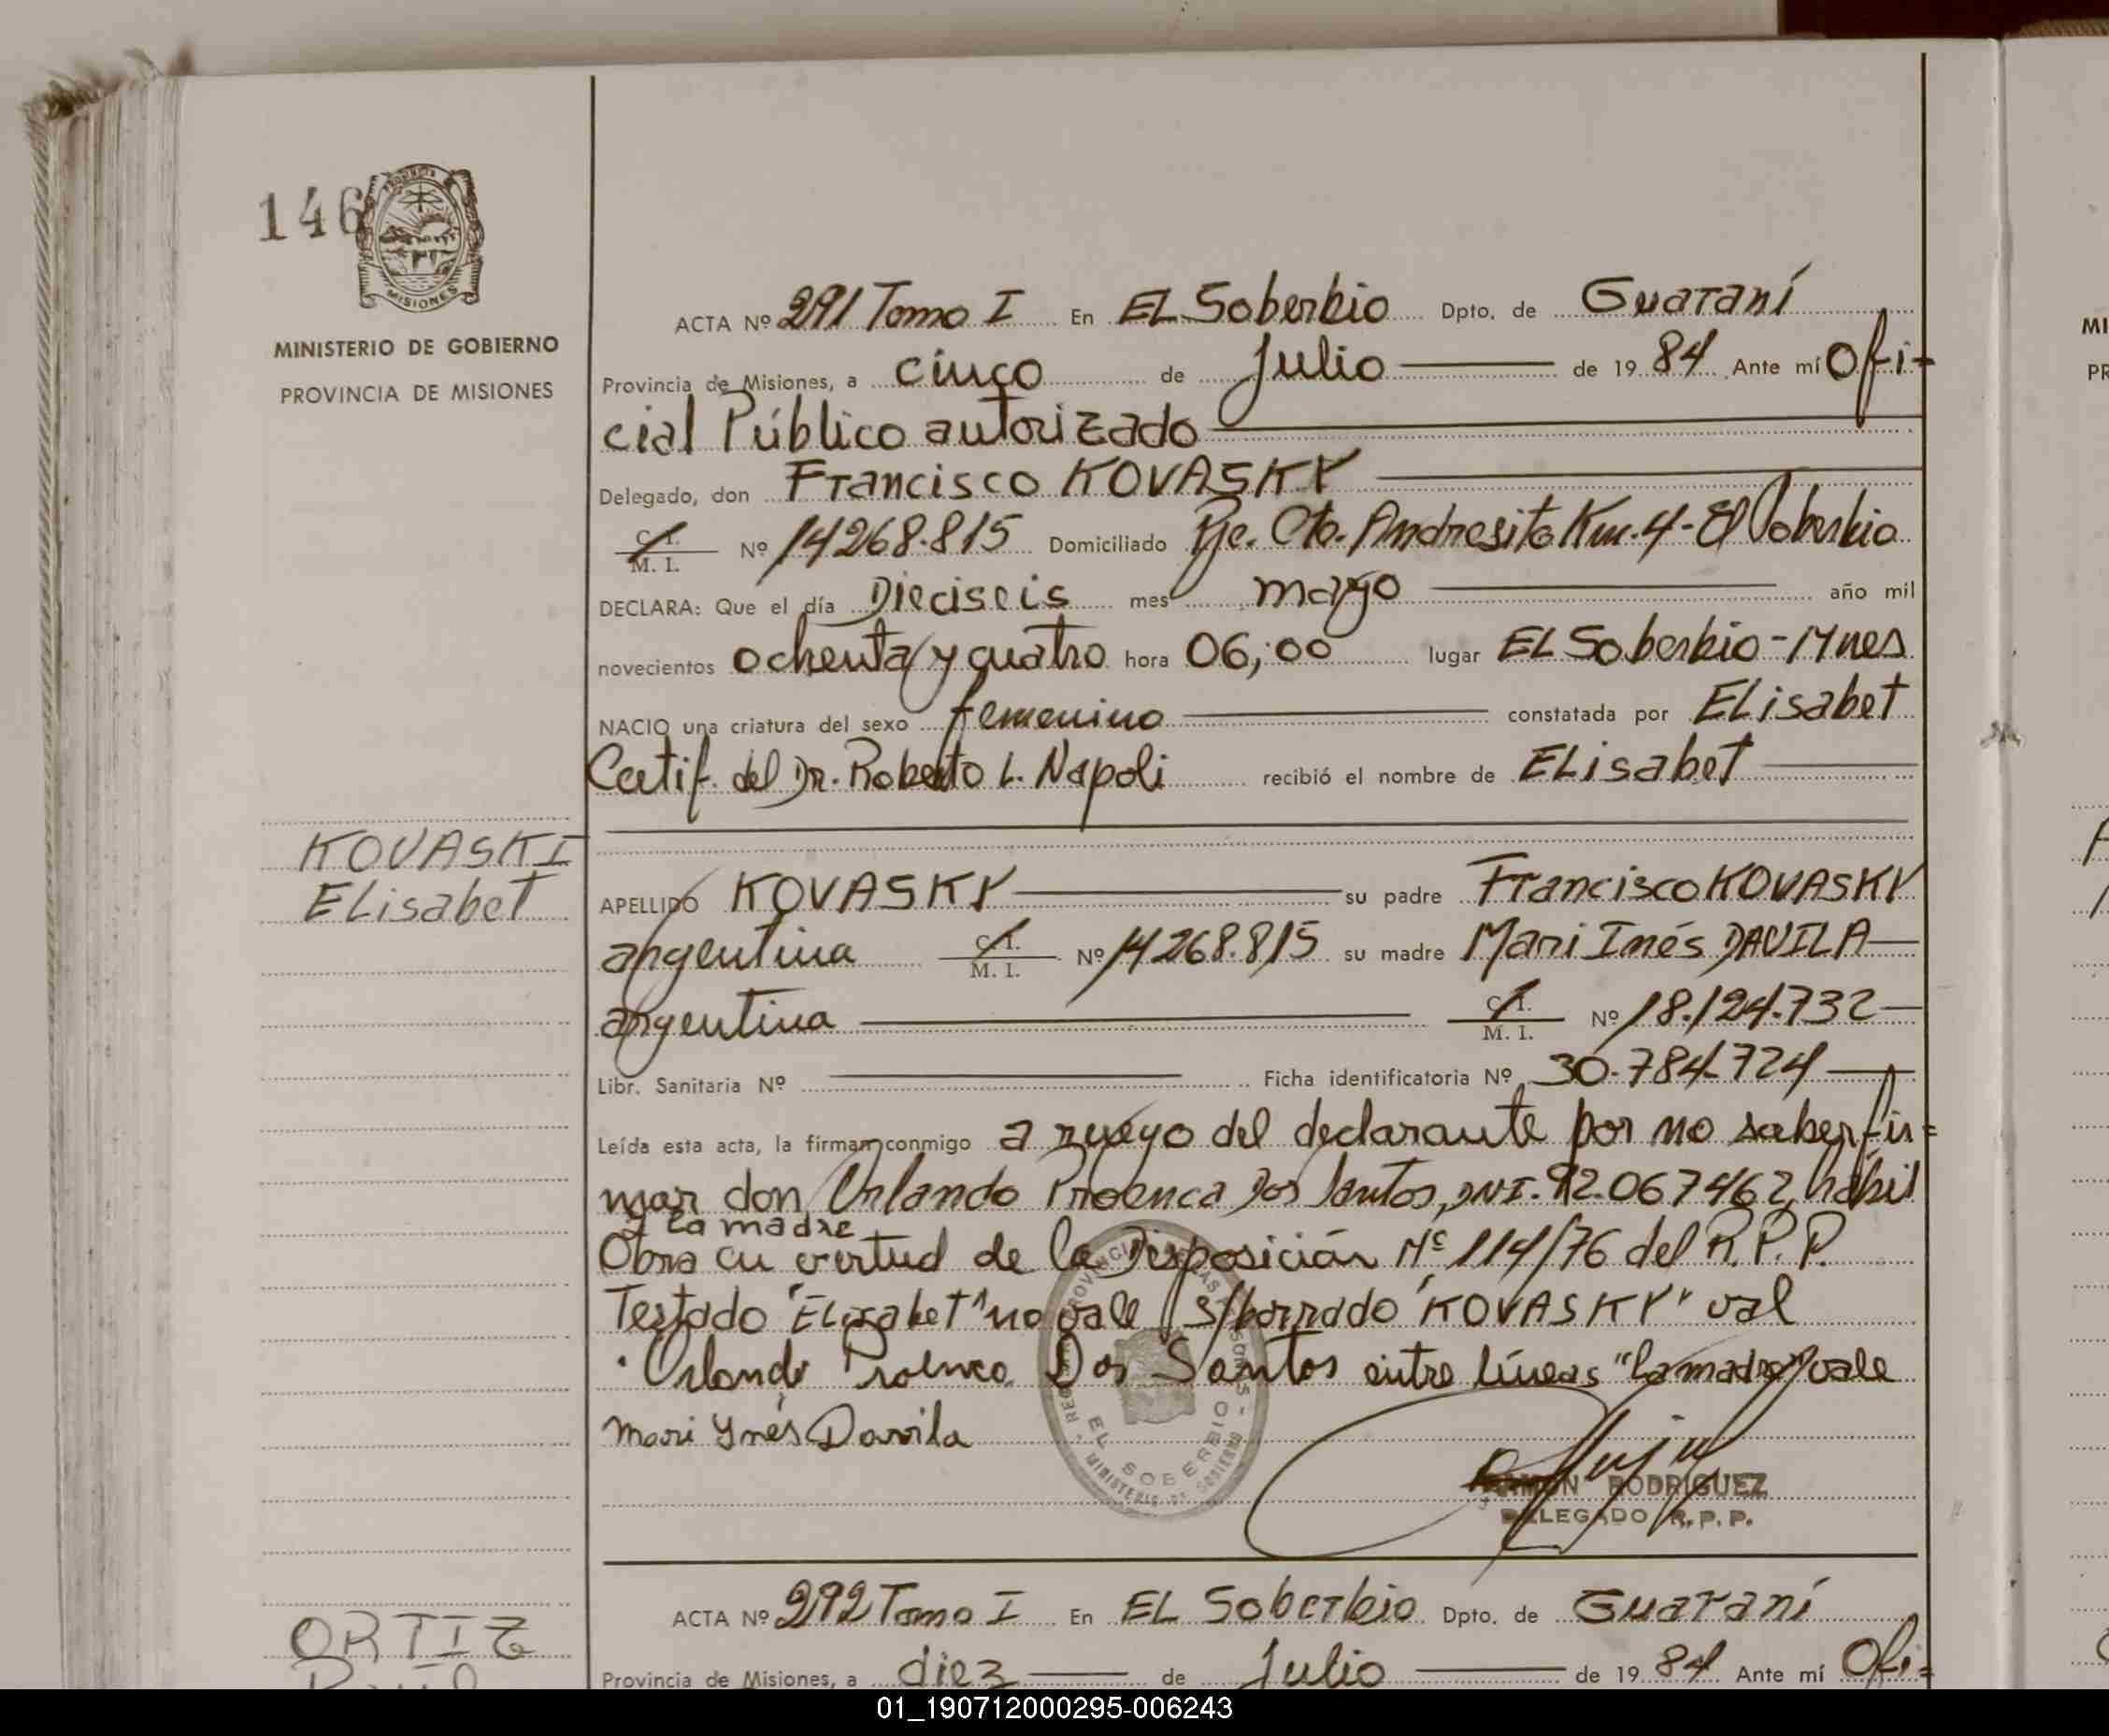 146
MISIONES
MINISTERIO DE GOBIERNO
PROVINCIA DE MISIONES
ACTA Nº 291 Tomo I En EL Soberbio Dpto. de Guaraní
Provincia de Misiones, a cinco de Julio de 1984 Ante mí Ofi-
cial Público autorizado
Delegado, don Francisco KOVASKY
C. I. M. I. Nº 14268.815 Domiciliado Pje. Cto. Andresito Km. 4 - El Soberbio
DECLARA: Que el día Dieciseis mes mayo año mil
novecientos ochenta y cuatro hora 06,00 lugar EL Soberbio - Mnes
NACIO una criatura del sexo femenino constatada por ELisabet
Certif. del Dr. Roberto L. Napoli recibió el nombre de ELisabet
KOVASKI
ELisabet
APELLIDO KOVASKY su padre Francisco KOVASKY
argentina C. I. M. I. Nº 14268.815 su madre Mari Inés DAVILA
argentina C. I. M. I. Nº 18.124.732
Libr. Sanitaria Nº Ficha identificatoria Nº 30.784.724
Leída esta acta, la firman conmigo a ruego del declarante por no saber fir=
mar don Orlando Proenca Dos Santos, DNI. 92.067462, hábil
y la madre
Obra en vertud de la Disposición Nº 114/76 del R.P.P.
Testado "ELisabet" no vale s/borrado "KOVASKY" val
Orlando Proenca Dos Santos entre líneas "la madre" vale
Mari Ynés Davila
EL SOBERBIO
MINISTERIO DE GOBIERNO
RAMON RODRIGUEZ
DELEGADO R.P.P.
ACTA Nº 292 Tomo I En EL Soberbio Dpto. de Guaraní
ORTIZ
Provincia de Misiones, a diez de Julio de 1984 Ante mí Ofi-
01_190712000295-006243